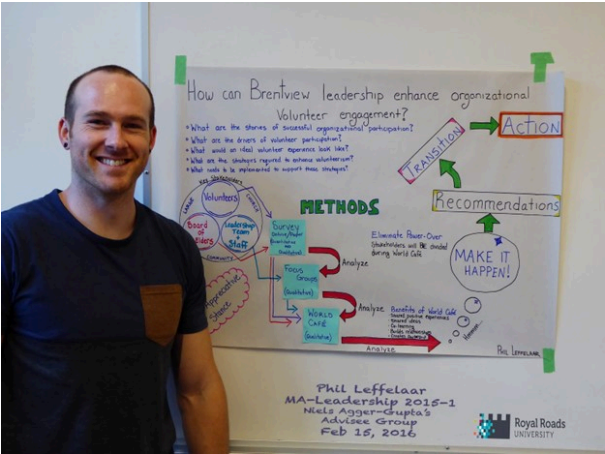 How can Brentview leadership enhance organizational
Volunteer engagement?
• What are the stories of successful organizational participation?
• What are the drivers of volunteer participation?
• What would an ideal volunteer experience look like?
• What are the strategies required to enhance volunteerism?
• What needs to be implemented to support these strategies?
Key Stakeholders
Volunteers
Board of Elders
Leadership Team + Staff
Community
Appreciative Stance
METHODS
Survey
(Quantitative
Qualitative)
Focus
Groups
(Qualitative)
WORLD
CAFE
(Qualitative)
Analyze
Analyze
Analyze
Eliminate Power-Over
Stakeholders will BE divided
during World Café
Benefits of World Café
- Shared positive experiences
- Co-learning
- Builds relationships
MAKE IT
HAPPEN!
Recommendations
TRANSITION
ACTION
PHIL LEFFELAAR
Phil Leffelaar
MA-Leadership 2015-1
Niels Agger-Gupta's
Advisee Group
Feb 15, 2016
Royal Roads
UNIVERSITY